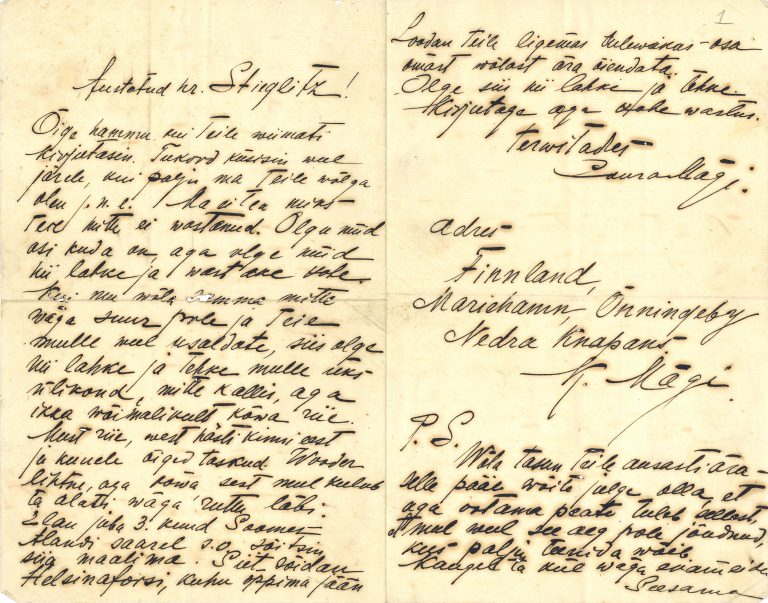 Austatud hr. Stieglitz!
Õige hammu kui Teile wiimati
kirjutasin. Tükord küsisin weel
järele, kui palju ma Teile wõlga
olen j.n.e. Ma ei tea miks
Teie mitte ei wastanud. Olgu nüüd
asi kuda on, aga olge nüüd
nii lahke ja wastake mulle.
Kui mu wõla summa mitte
wäga suur pole ja Teie
mulle weel usaldate, siis olge
nii lahke ja tehke mulle üks
ülikond, mitte kallis, aga
ikka wõimalikult kõwa riie.
Must riie, west hästi kinni eest
ja kuuele õiged taskud. Wooder
lihtne, aga kõwa sest mul kulub
ta alatti wäga ruttu läbi.
Elan juba 3. kuud Soomes
Alandi saarel s.o. sõitsin
siia maalima. Siit sõidan
Helsinaforsi, kuhu õppima jään
1
Loodan Teile ligemas tulewikus osa
omast wõlast ära õiendata.
Olge siis nii lahke ja tehke.
Kirjutage aga ruttu wastus.
Terwitades
Mägi.
Adres
Finnland,
Mariehamn, Önningeby
Nedra Knapans
K. Mägi.
P. S.
Wõla tasun Teile ausasti ära
selle pääle wõite julge olla, et
aga ootama peate tuleb sellest,
et mul weel see aeg pole jõudnud,
kus palju teenida wõib.
Kaugel ta küll wäga enam ei ole
Seesama